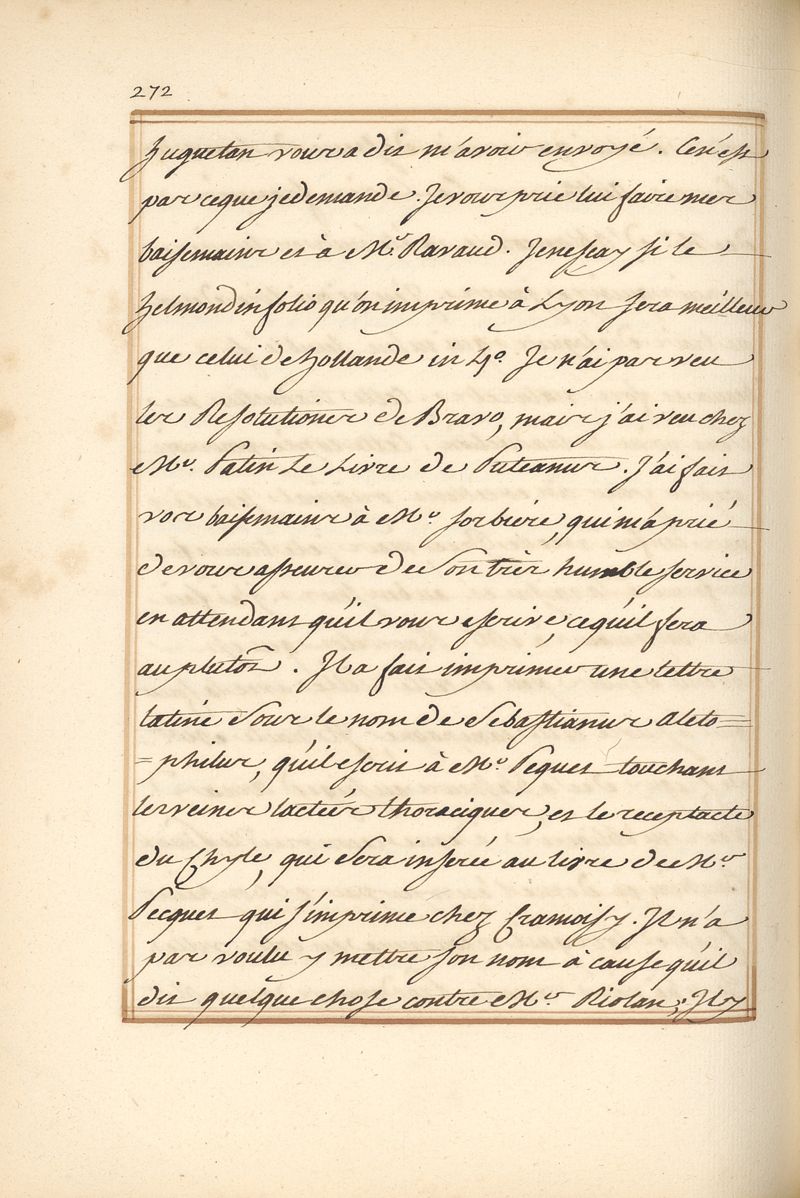 272
huguetan vous a dit m'avoir envoyé. Ce n'est
pas ce que je demande. Je vous prie lui faire mes
baisemains et à Mr. Ravaud. Je ne scay si le
helmond in folio qu'on imprime à Lyon sera meilleur
que celui de hollande in 4o. Je n'ai pas veu
les Resolutiones de Bravo, mais j'ai veu chez
Mr. Patin Le Livre de Puteanus. J'ai fait
vos baisemains à Mr. sorbiére, qui m'a prié
de vous asseurer de son très humble service
en attendant qu'il vous escrive, ce qu'il fera
au plutôt. Il a fait imprimer une lettre
latine sous le nom de Sebastianus Aleto=
=philus, qu'il escrit à Mr. Pequet touchant
les veines lactées thoraciques, et le receptacle
du Chyle, qui sera inserée au livre de Mr.
Pecquet qui s'imprime chez Cramoisy. Il n'a
pas voulu y mettre son nom à cause qu'il
dit quelque chose contre Mr. Riolan; Il y